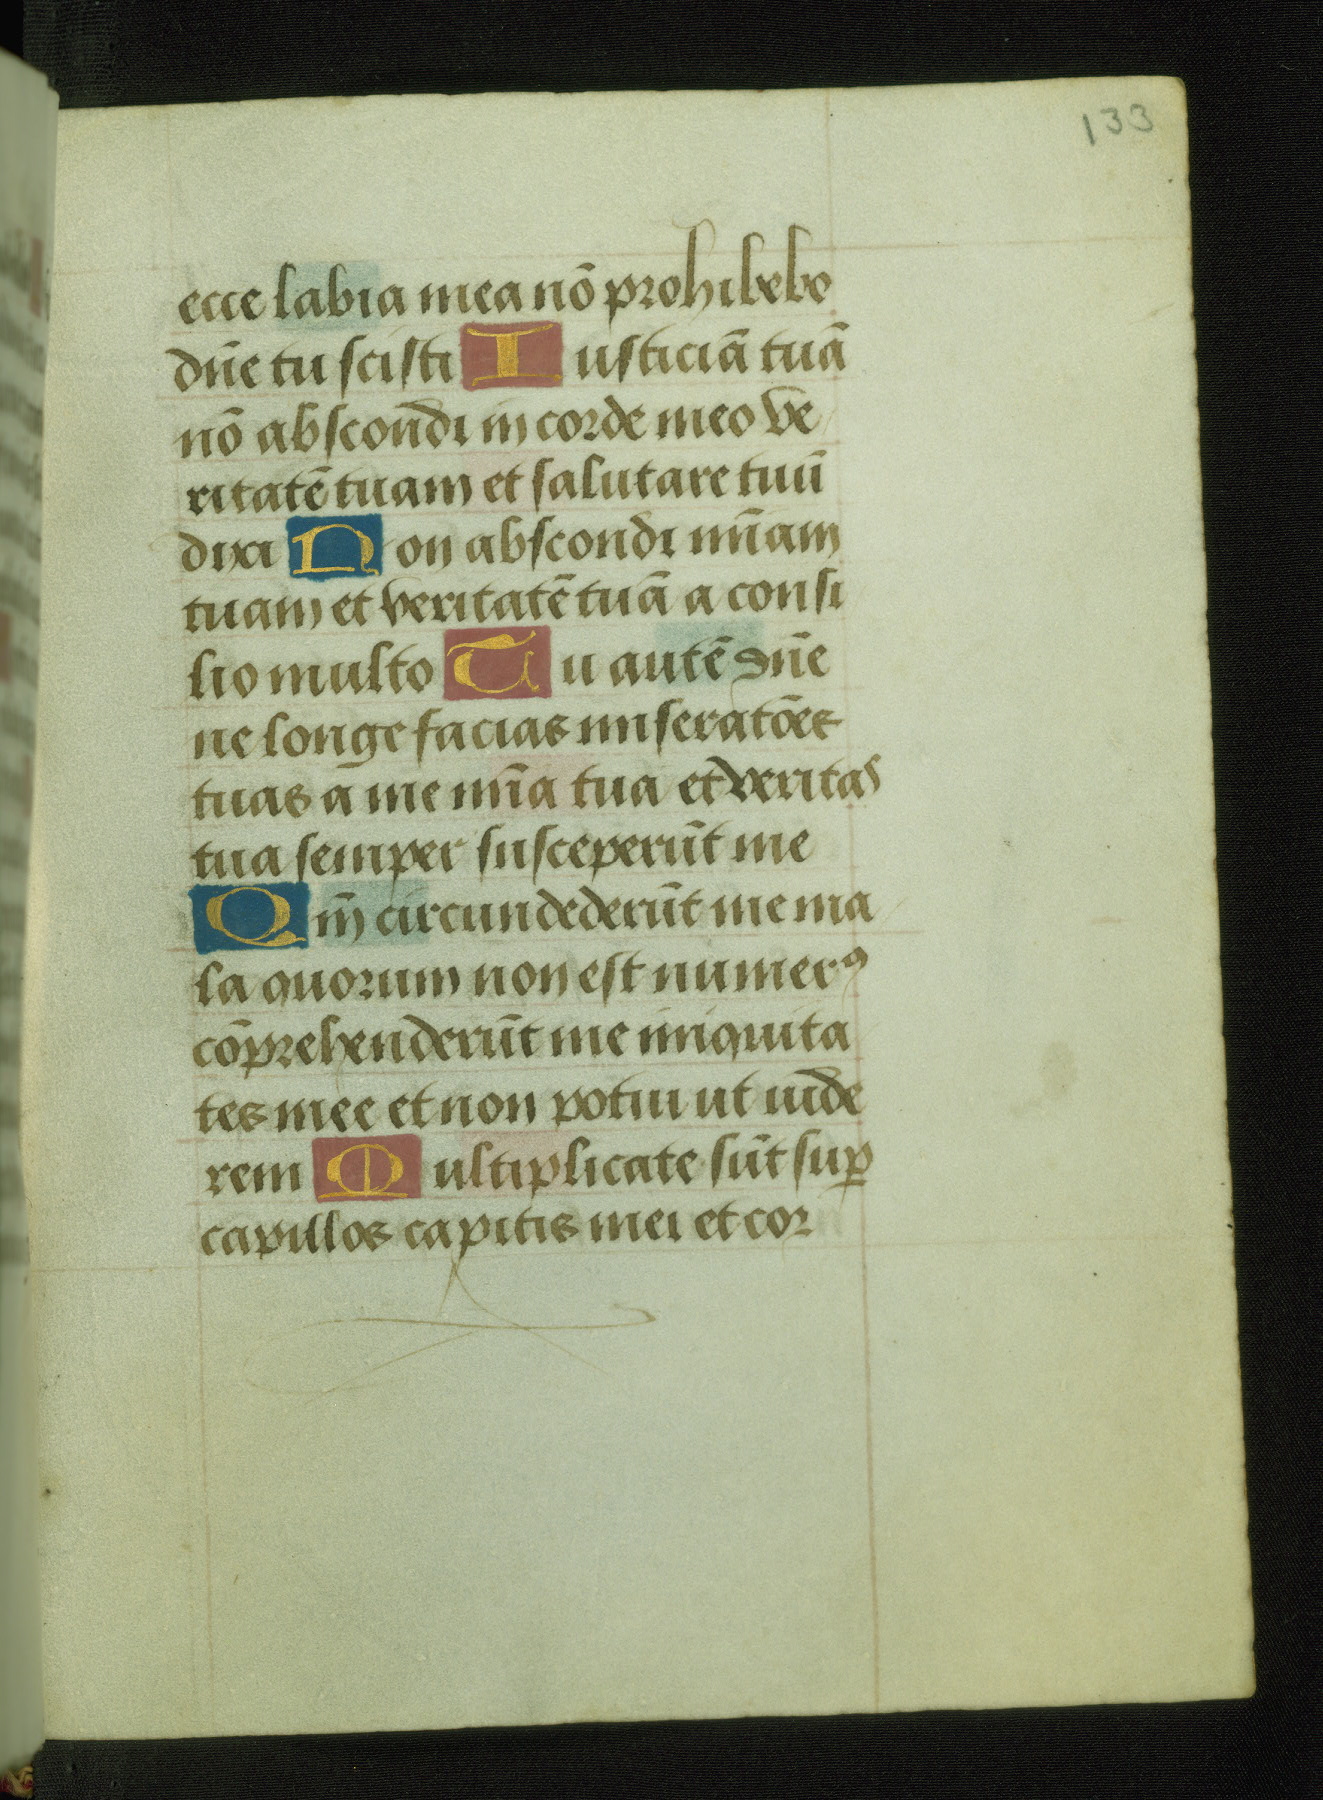 133
ecce labia mea nō prohibebo
dn̄e tu scisti Iusticiā tuā
nō abscondi in corde meo ve
ritatē tuam et salutare tuū
dixi Non abscondi mīam
tuam et veritatē tuā a consi
lio multo Tu autē dn̄e
ne longe facias miseratōes
tuas a me mīa tua et veritas
tua semper susceperūt me
Qm̄ circundederūt me ma
la quorum non est numerꝰ
cōprehenderūt me iniquita
tes mee et non potui ut vide
rem Multiplicate sūt suꝑ
capillos capitis mei et cor